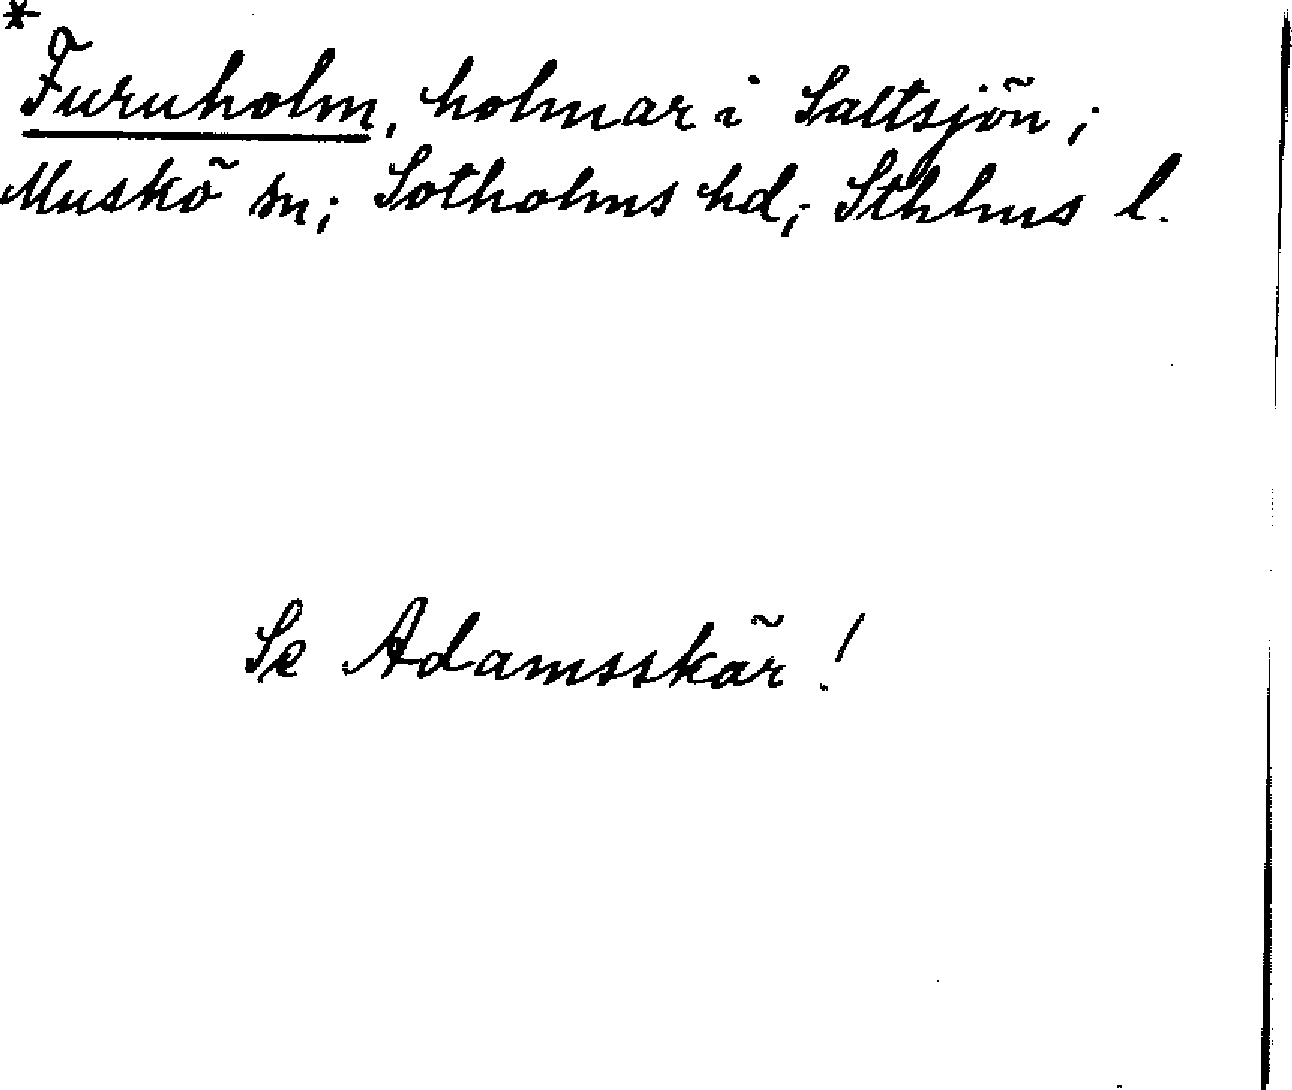 *
Furuholm, holmar i Saltsjön;
Muskö sn; Sotholms hd; Sthlms l.
Se Adamsskär!